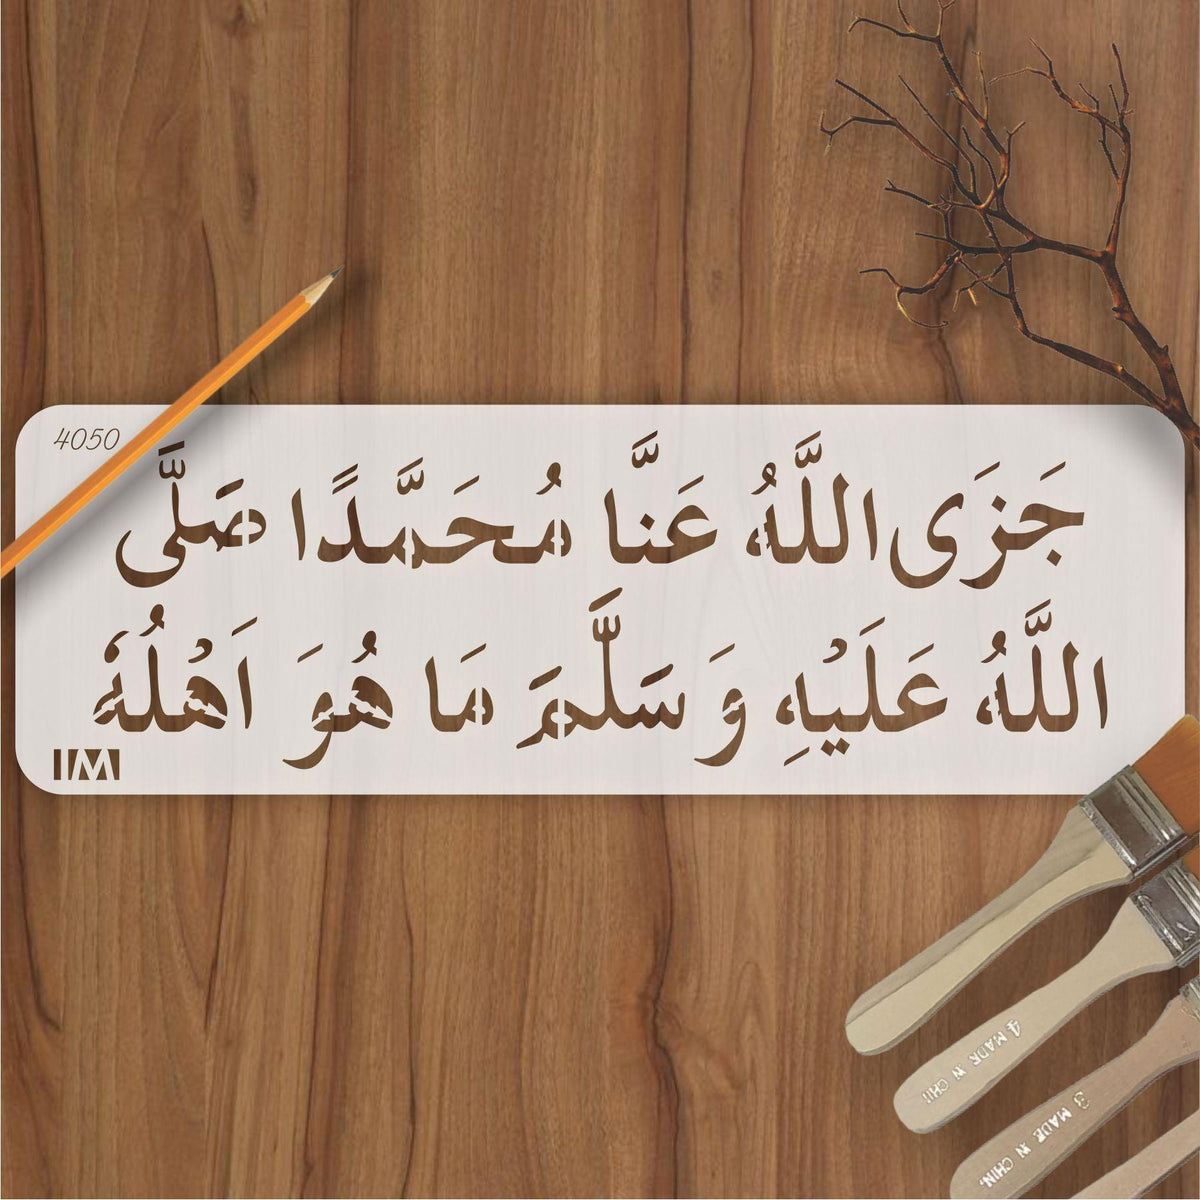 4050
جَزَى اللَّهُ عَنَّا مُحَمَّدًا صَلَّى
اللَّهُ عَلَيْهِ وَسَلَّمَ مَا هُوَ اَهْلُهٗ
IM
4 MADE IN CHI
3 MADE IN CHIN.